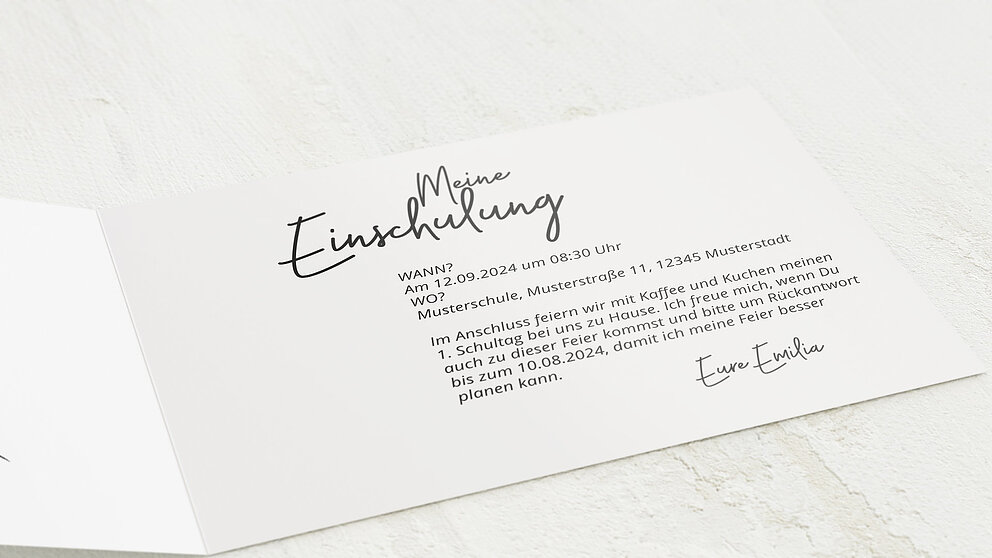 Meine
Einschulung
WANN?
Am 12.09.2024 um 08:30 Uhr
WO?
Musterschule, Musterstraße 11, 12345 Musterstadt
Im Anschluss feiern wir mit Kaffee und Kuchen meinen
1. Schultag bei uns zu Hause. Ich freue mich, wenn Du
auch zu dieser Feier kommst und bitte um Rückantwort
bis zum 10.08.2024, damit ich meine Feier besser
planen kann.
Eure Emilia